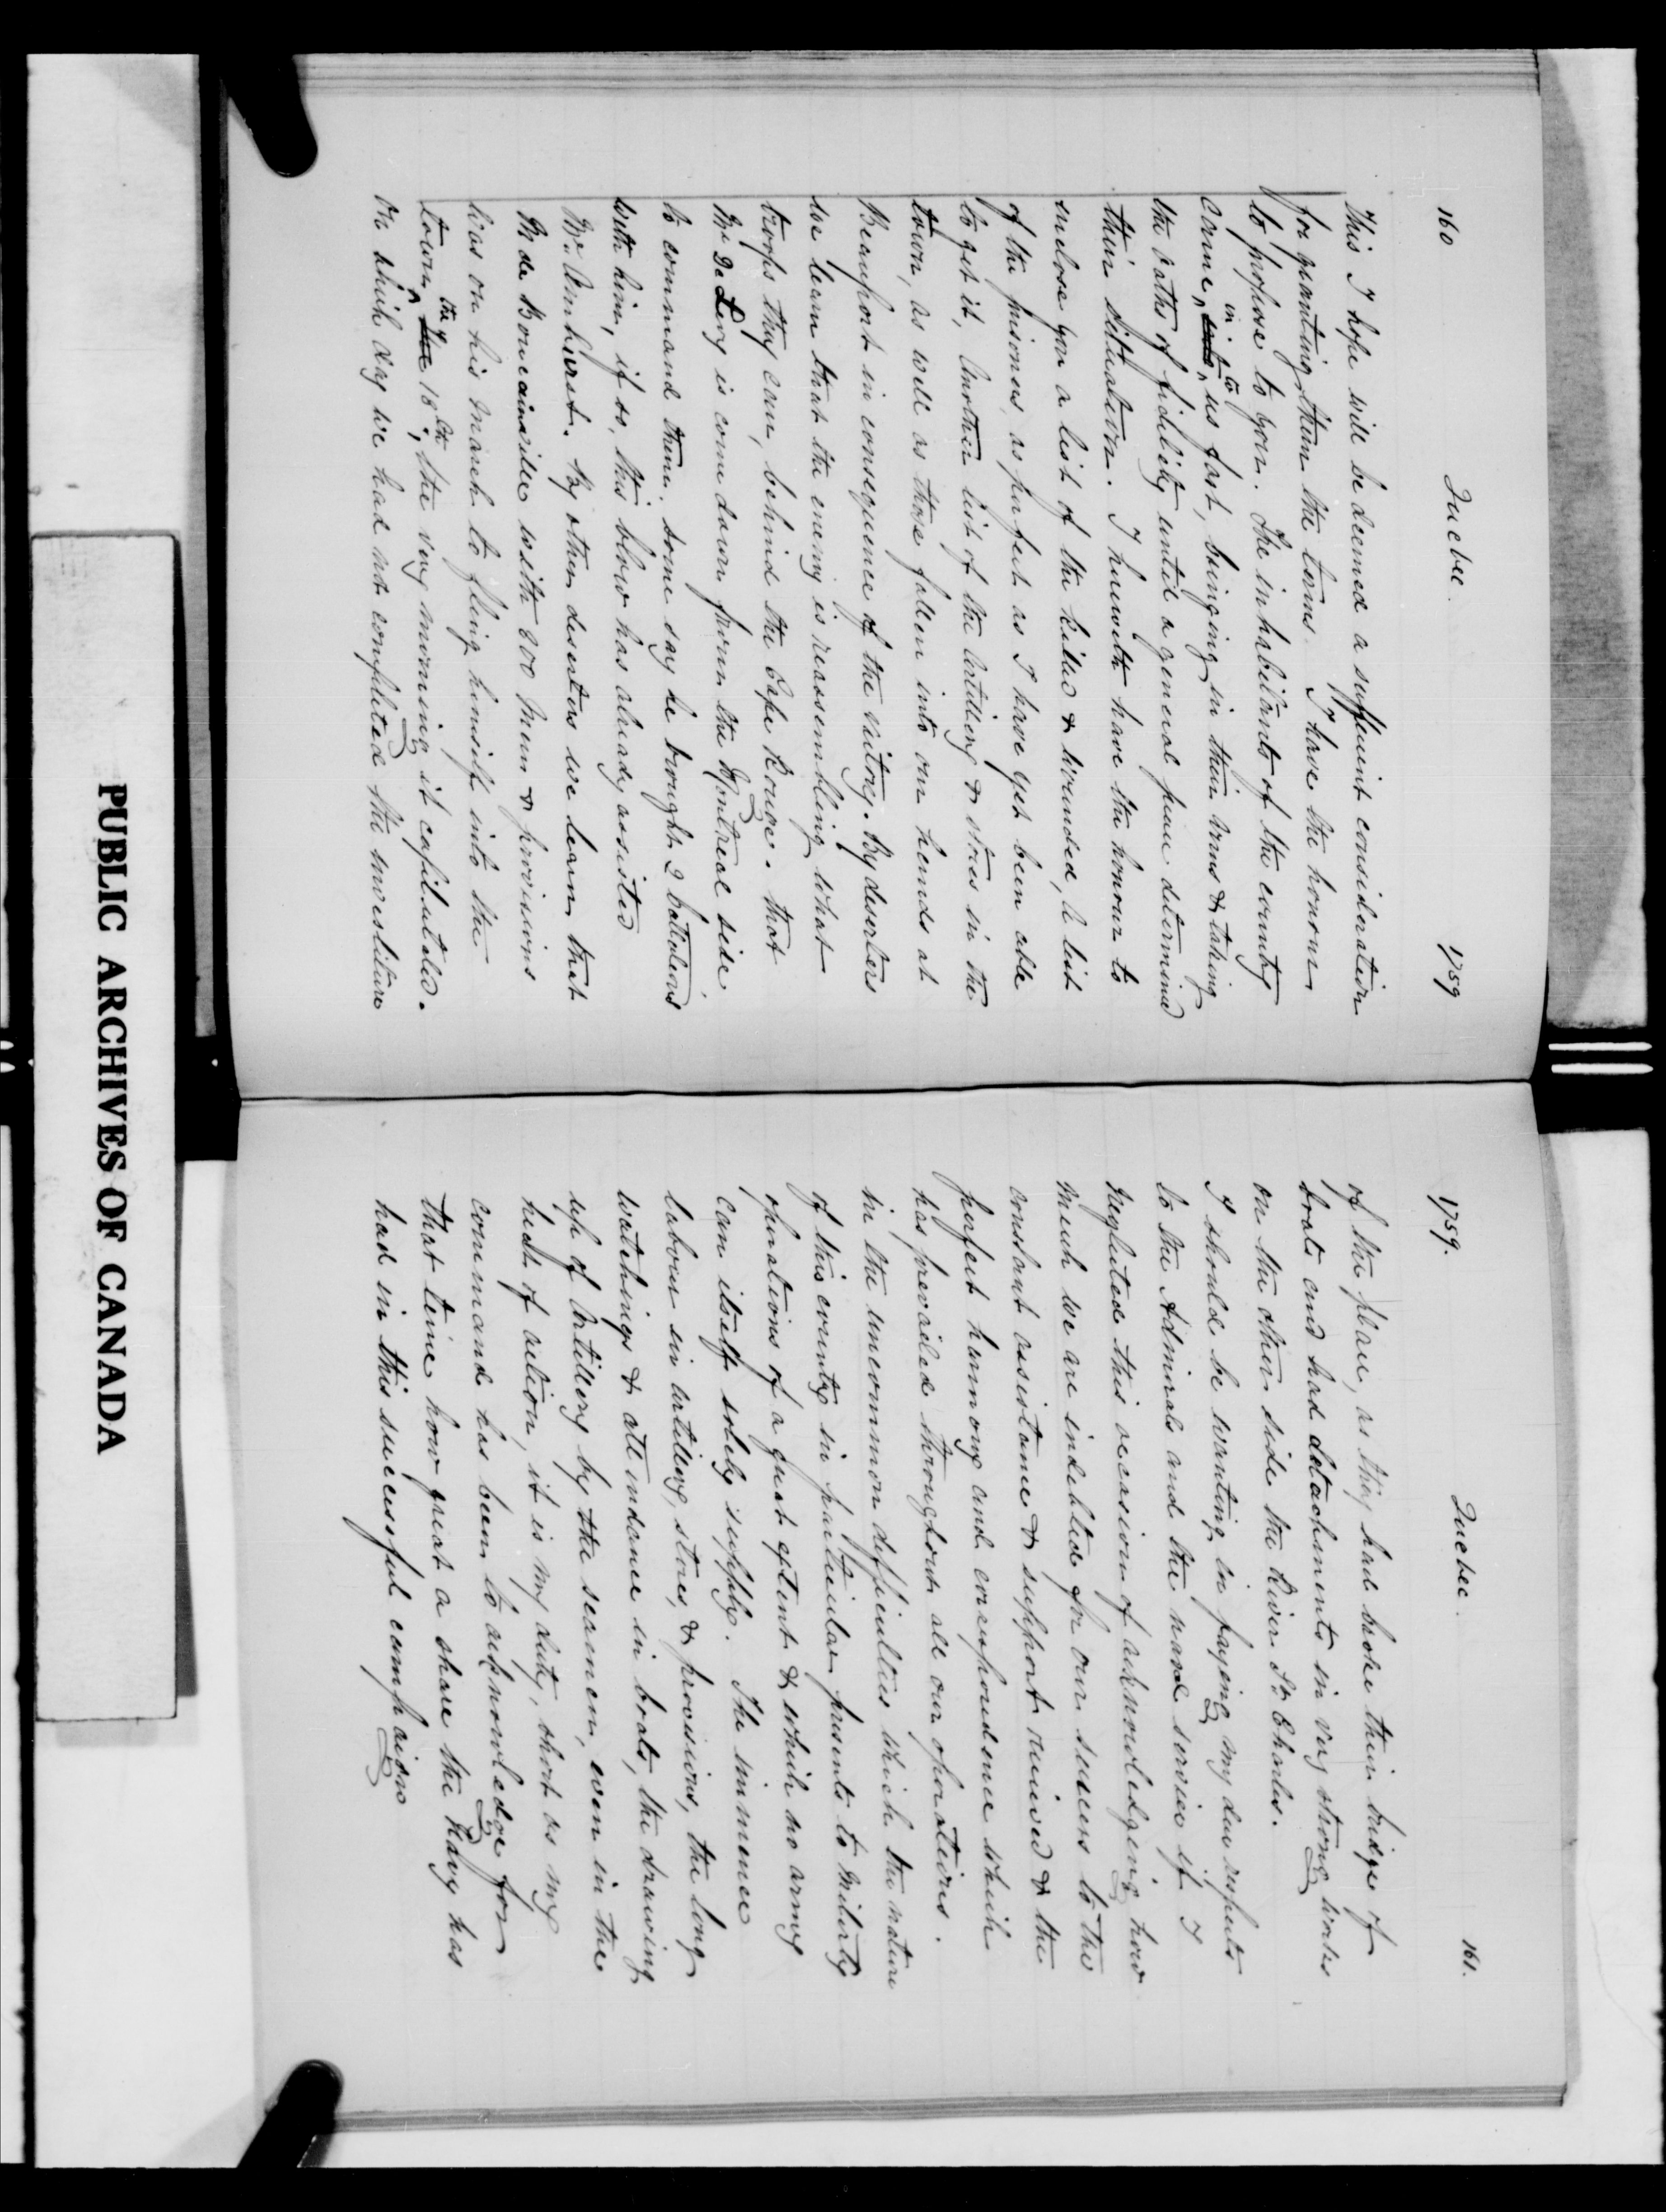 160 Quebec. 1759
This I hope will be deemed a sufficient consideration
for granting them the terms I have the honour
to propose to you. The inhabitants of the country
come, in to us fast, bringing in their arms & taking
the oaths of fidelity until a general peace determined
their situation. I herewith have the honour to
inclose you a list of the killed & wounded, a list
of the prisoners as perfect as I have yet been able
to get it, another list of the artillery & stores in the
town, as well as those fallen into our hands at
Beauport in consequence of the victory. By deserters
we learn that the enemy is reassembling what
troops they can, behind the Cape Rouge. that
Mr De Levy is come down from the Montreal side
to command them. some say he brought 2 battalions
with him, if so, this blow has already assisted
Mr. Amherst. By other deserters we learn that
M de Boucainville with 800 men & provisions
was on his march to fling himself into the
town, the 18th, the very morning it capitulated.
on which day we had not compleated the investiture
1759. Quebec. 161.
of the place, as they had broke their bridge of
boats and had detachments in very strong works
on the other side the River St Charles.
I should be wanting in paying my due respects
to the Admirals and the naval service if I
neglected this occasion of acknowledging how
much we are indebted for our success to the
constant assistance & support received & the
perfect harmony and correspondence which
has prevailed throughout all our operations.
in the uncommon difficulties which the nature
of this country in particular presents to military
operations of a great extent & which no army
can itself solely supply. The immence
labour in artillery, stores, & provisions, the long
watchings & attendance in boats, the drawing
up of Artillery by the seamen, even in the
heat of action, it is my duty, short as my
command has been to acknowledge for
that time how great a share the Navy has
had in this successful campaign
PUBLIC ARCHIVES OF CANADA